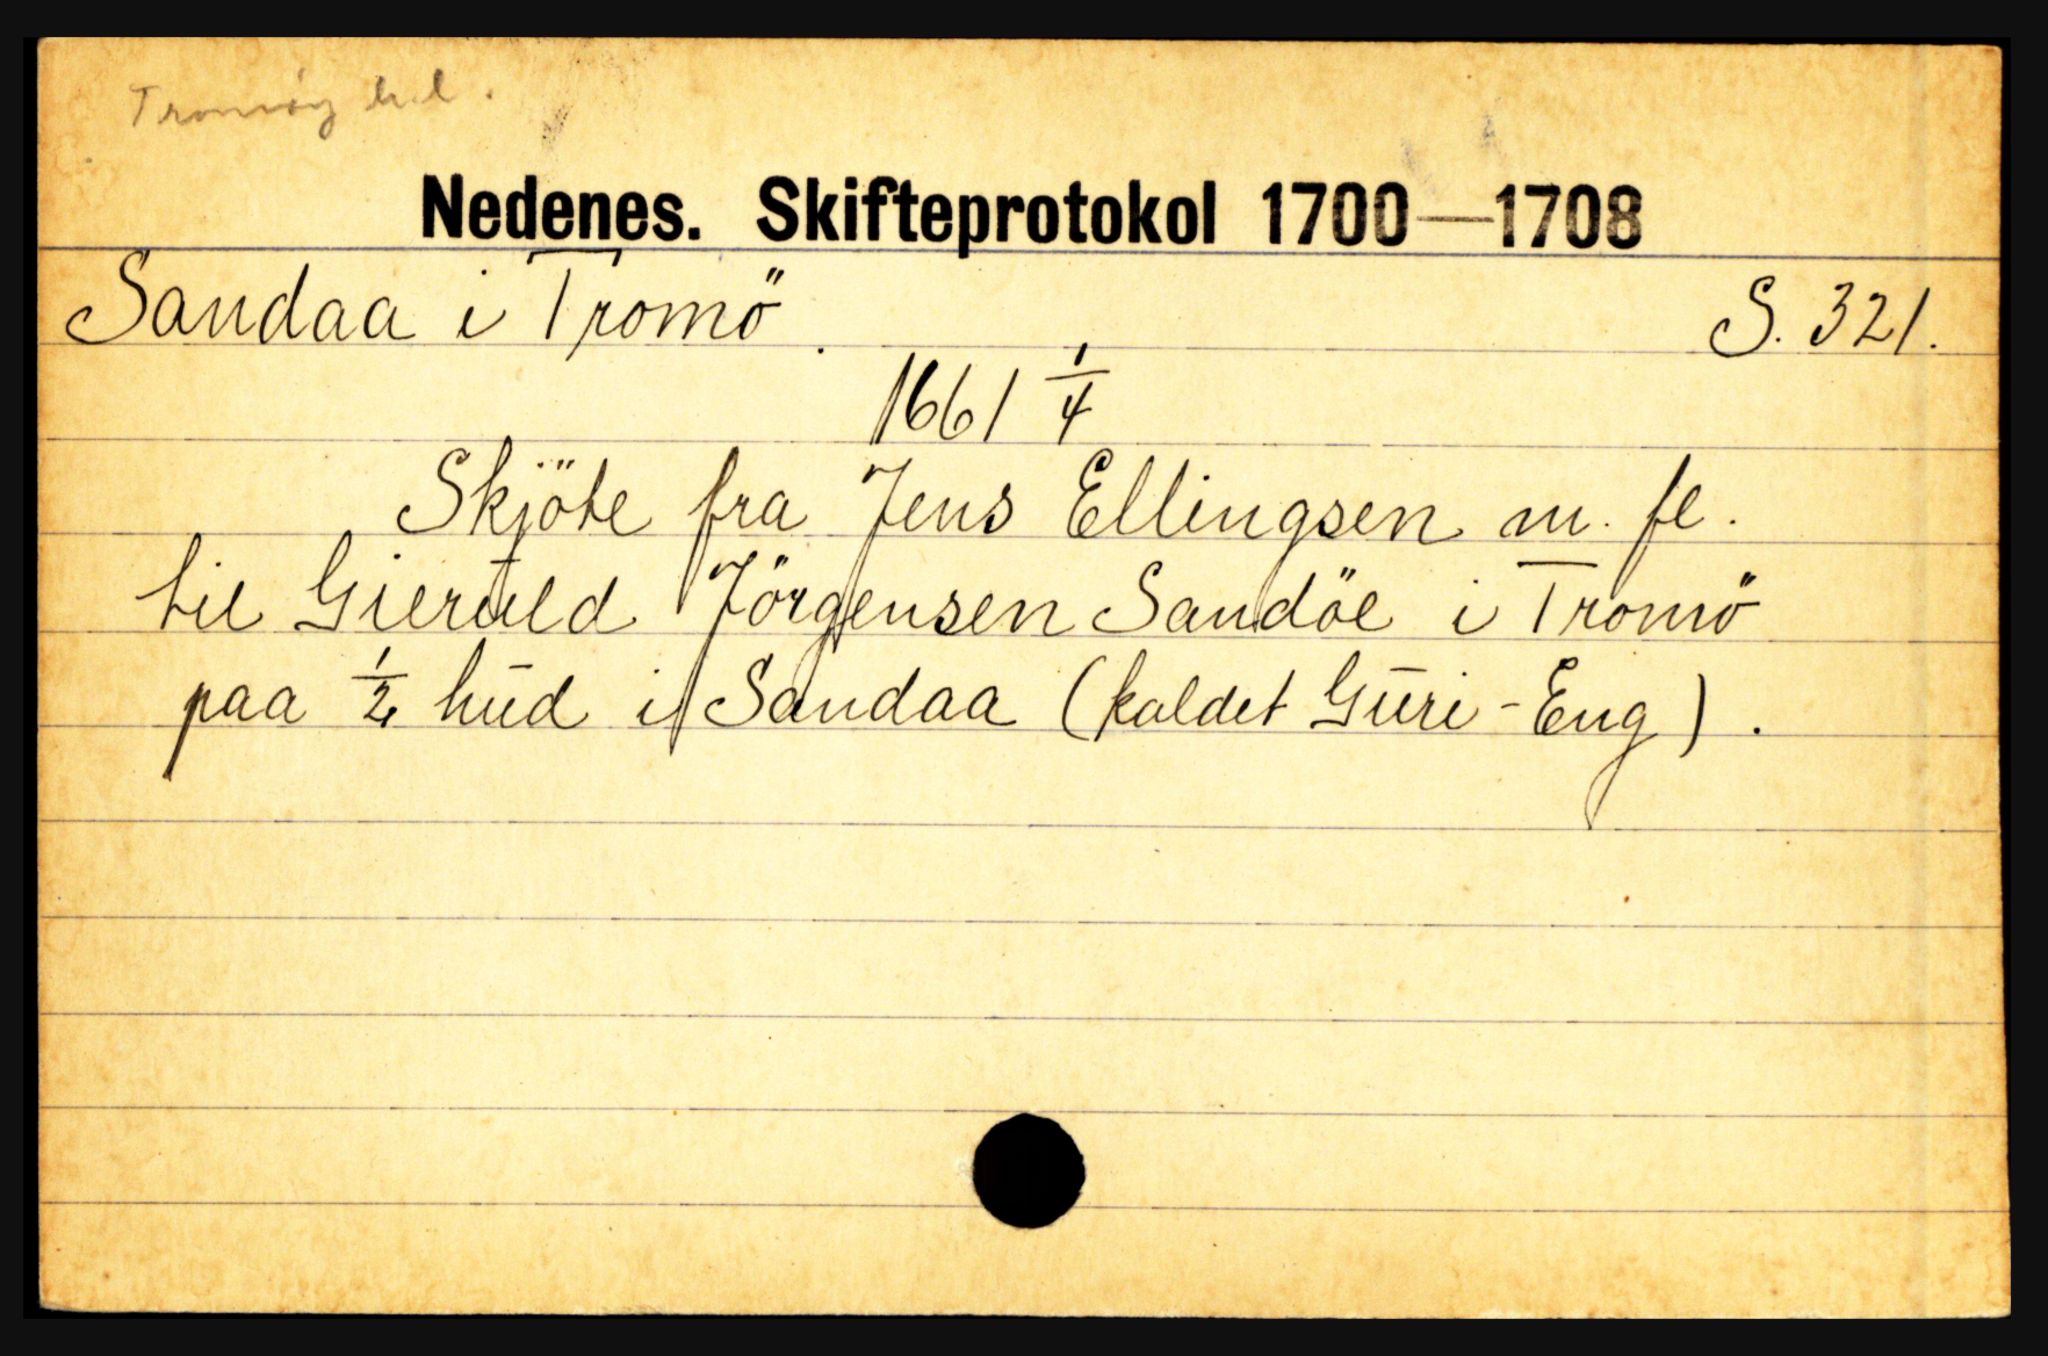 Tromöy hrd.
Nedenes. Skifteprotokol 1700—1708
Sandaa i Tromö. S. 321.
1661 1/4
Skjöte fra Jens Ellingsen m. fl.
til Gieruld Jörgensen Sandöe i Tromö
paa 1/2 hud i Sandaa (kaldet Guri-Eng).